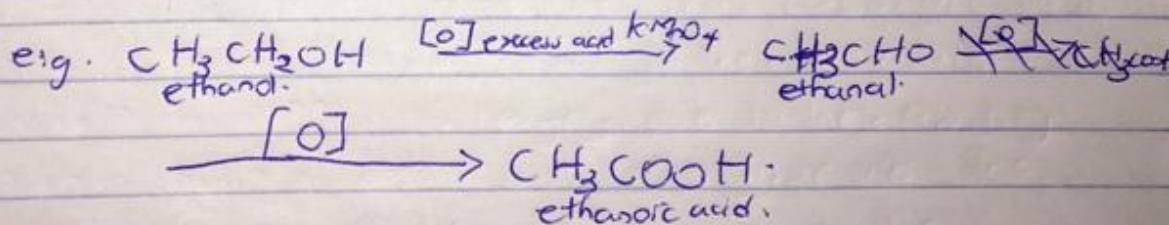 e.g. CH₃CH₂OH [O] excess acid KMnO₄ → CH₃CHO [O] → CH₃COOH
ethanol. ethanal.
[O] → CH₃COOH.
ethanoic acid.